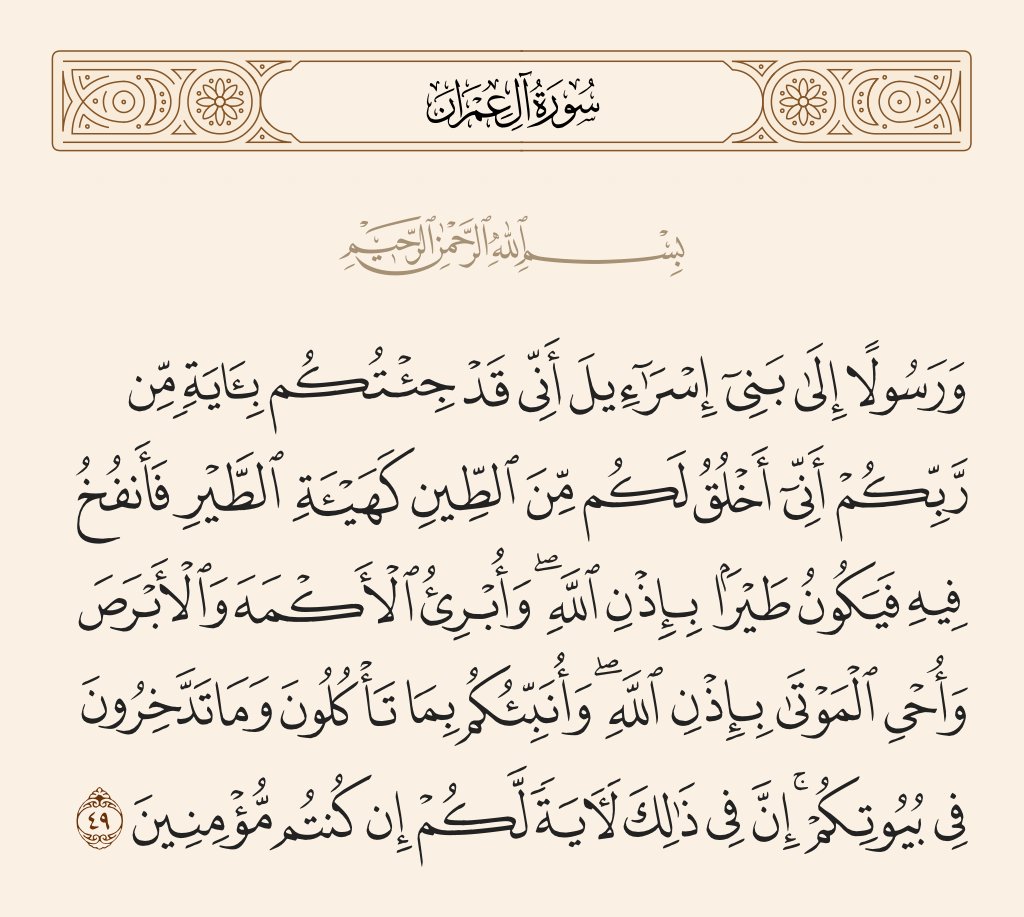 سُورَةُ آلِ عِمْرَانَ
بِسْمِ ٱللَّهِ ٱلرَّحْمَٰنِ ٱلرَّحِيمِ
وَرَسُولًا إِلَىٰ بَنِىٓ إِسْرَٰٓءِيلَ أَنِّى قَدْ جِئْتُكُم بِـَٔايَةٍ مِّن
رَّبِّكُمْ أَنِّىٓ أَخْلُقُ لَكُم مِّنَ ٱلطِّينِ كَهَيْـَٔةِ ٱلطَّيْرِ فَأَنفُخُ
فِيهِ فَيَكُونُ طَيْرًۢا بِإِذْنِ ٱللَّهِ ۖ وَأُبْرِئُ ٱلْأَكْمَهَ وَٱلْأَبْرَصَ
وَأُحْىِ ٱلْمَوْتَىٰ بِإِذْنِ ٱللَّهِ ۖ وَأُنَبِّئُكُم بِمَا تَأْكُلُونَ وَمَا تَدَّخِرُونَ
فِى بُيُوتِكُمْ ۚ إِنَّ فِى ذَٰلِكَ لَـَٔايَةً لَّكُمْ إِن كُنتُم مُّؤْمِنِينَ ٤٩